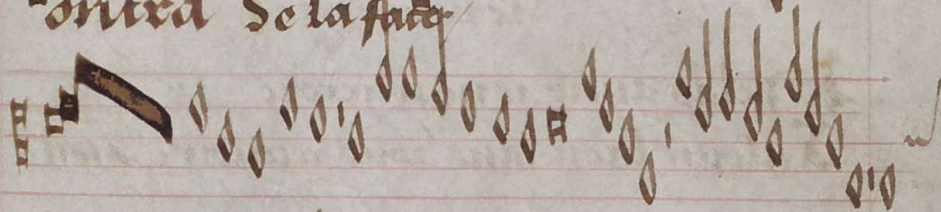 ontra Se la face